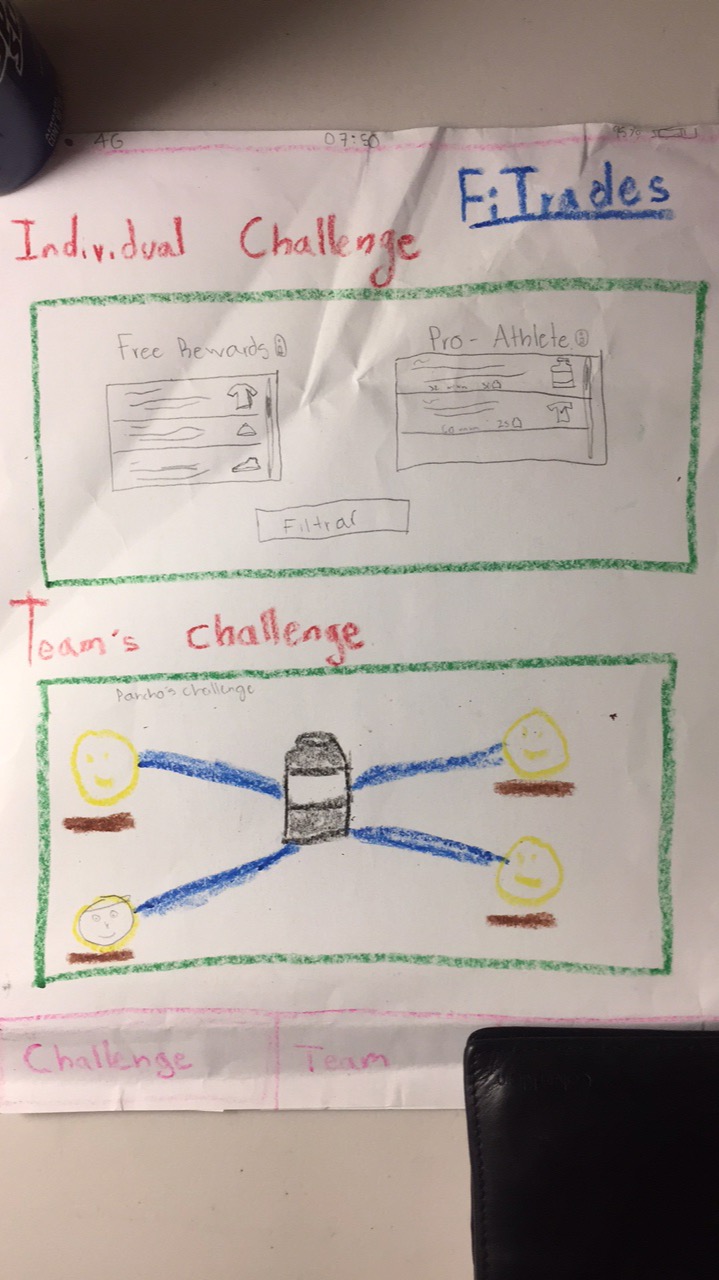 4G 07:50 95%
FiTrades
Individual Challenge
Free Rewards
Pro-Athlete
Filtrar
Team's challenge
Pancho's challenge
Challenge Team